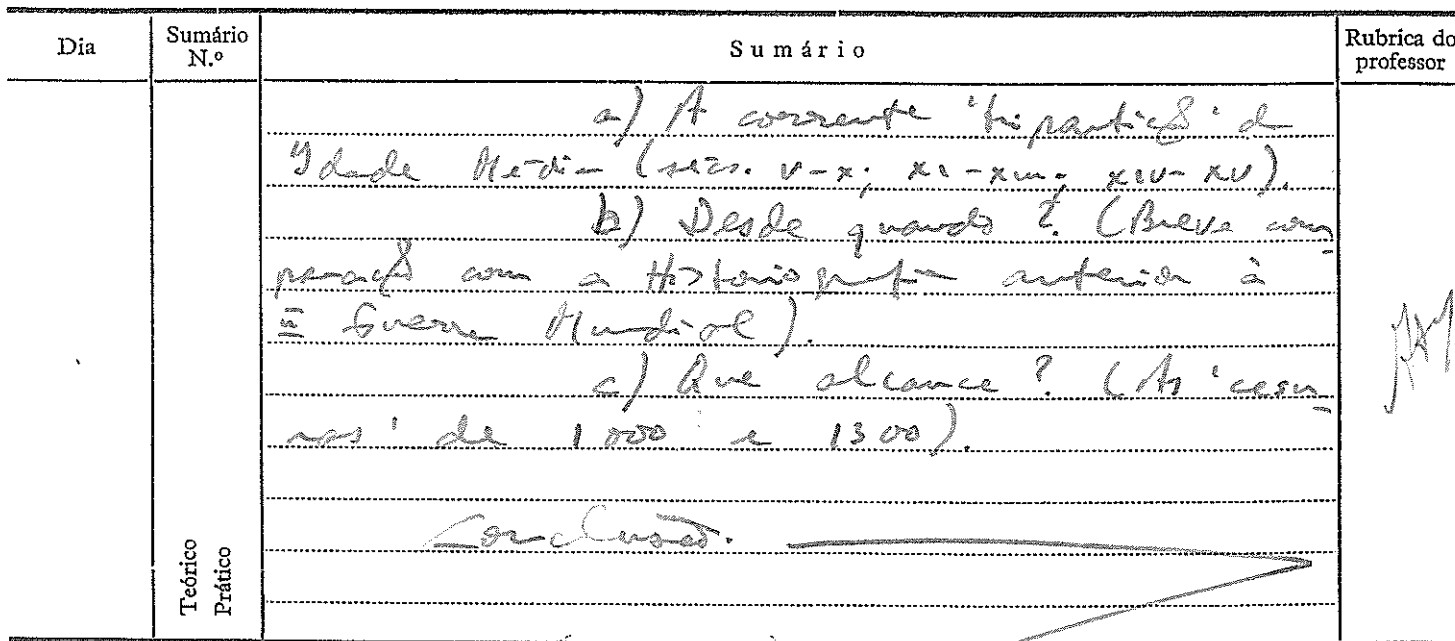 Dia
Sumário N.º
Sumário
Rubrica do professor
a) A corrente 'tripartição' d
Idade Média (sécs. V-X; XI-XIII; XIV-XV).
b) Desde quando? (Breve com
paração com a Historiografia anterior à
II Guerra Mundial).
c) Que alcance? (As 'cesu
ras' de 1000 e 1300).
Conclusão.
Teórico
Prático